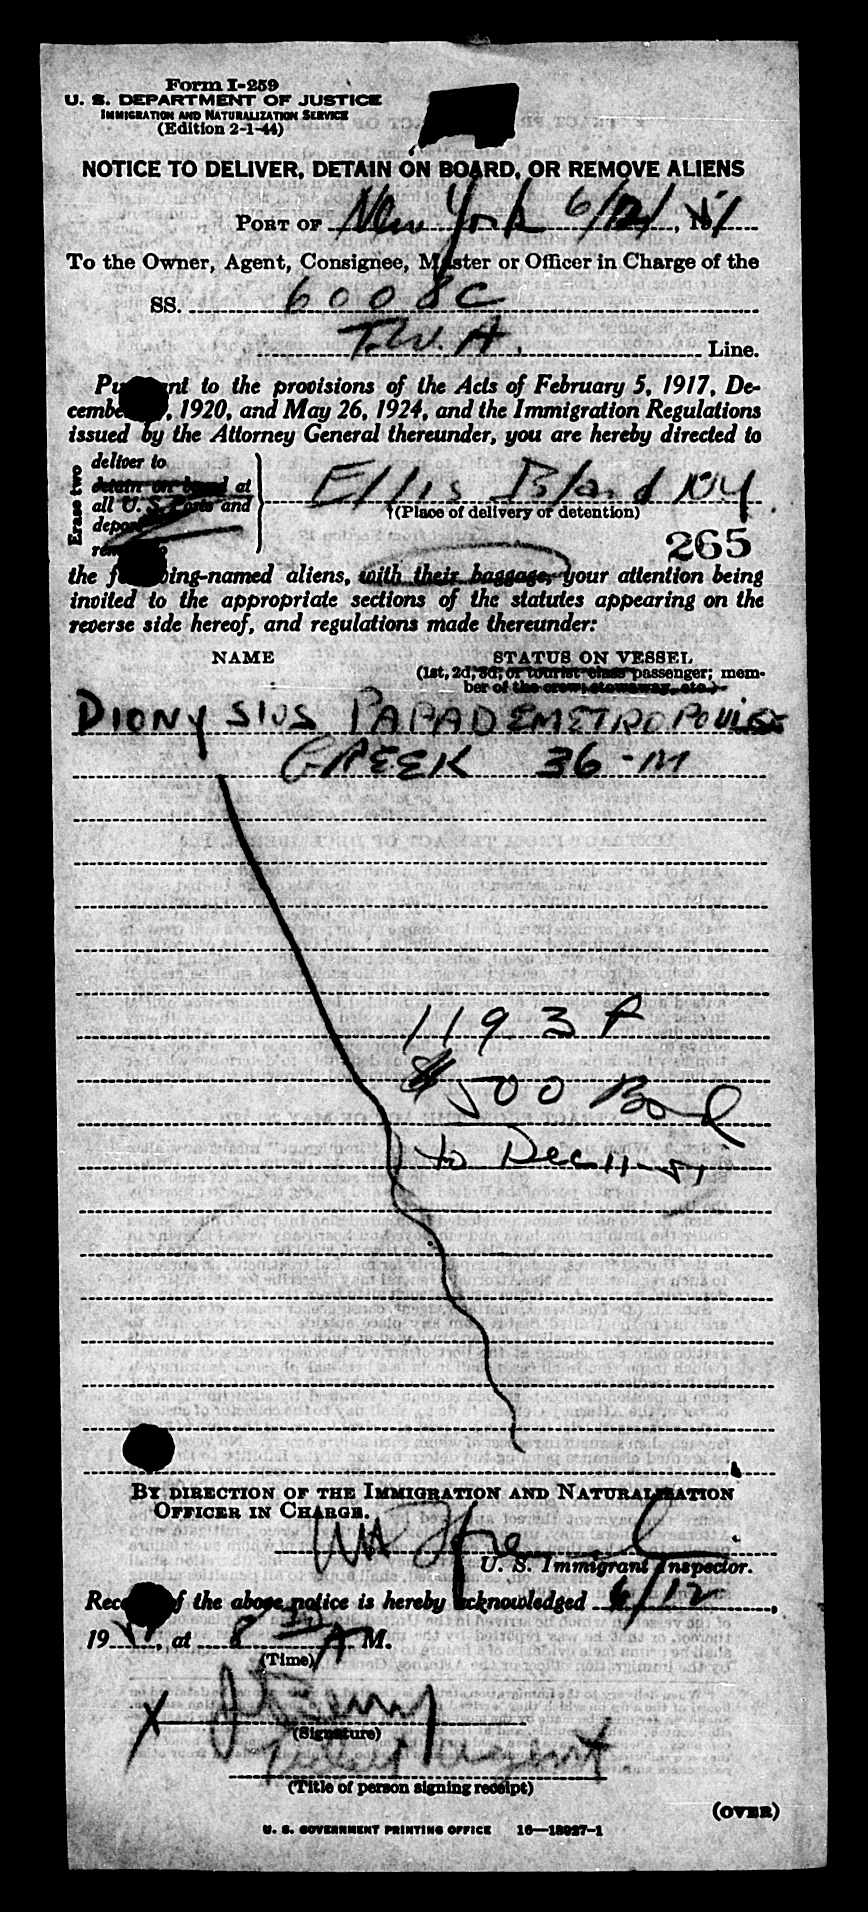 Form I-259
U. S. DEPARTMENT OF JUSTICE
IMMIGRATION AND NATURALIZATION SERVICE
(Edition 2-1-44)
NOTICE TO DELIVER, DETAIN ON BOARD, OR REMOVE ALIENS
PORT OF New York 6/12/, 1951
To the Owner, Agent, Consignee, Master or Officer in Charge of the
SS. 6008C
T.W.A. Line.
Pursuant to the provisions of the Acts of February 5, 1917, De-
cember, 1920, and May 26, 1924, and the Immigration Regulations
issued by the Attorney General thereunder, you are hereby directed to
Erase two
deliver to
detain on board at
all U. S. Ports and
deport
remove to
Ellis Island NY
†(Place of delivery or detention)
265
the following-named aliens, with their baggage, your attention being
invited to the appropriate sections of the statutes appearing on the
reverse side hereof, and regulations made thereunder:
NAME STATUS ON VESSEL
(1st, 2d, 3d, or tourist class passenger; mem-
ber of the crew, stowaway, etc.)
DIONYSIUS PAPADEMETROPOULOS
GREEK 36-M
1193 P
$500 Bond
to Dec 11-51
BY DIRECTION OF THE IMMIGRATION AND NATURALIZATION
OFFICER IN CHARGE.
U. S. Immigrant Inspector.
Receipt of the above notice is hereby acknowledged 6/12,
1951, at 8 30 A M.
(Time)
X
(Signature)
(Title of person signing receipt)
(OVER)
U. S. GOVERNMENT PRINTING OFFICE 16—18927-1